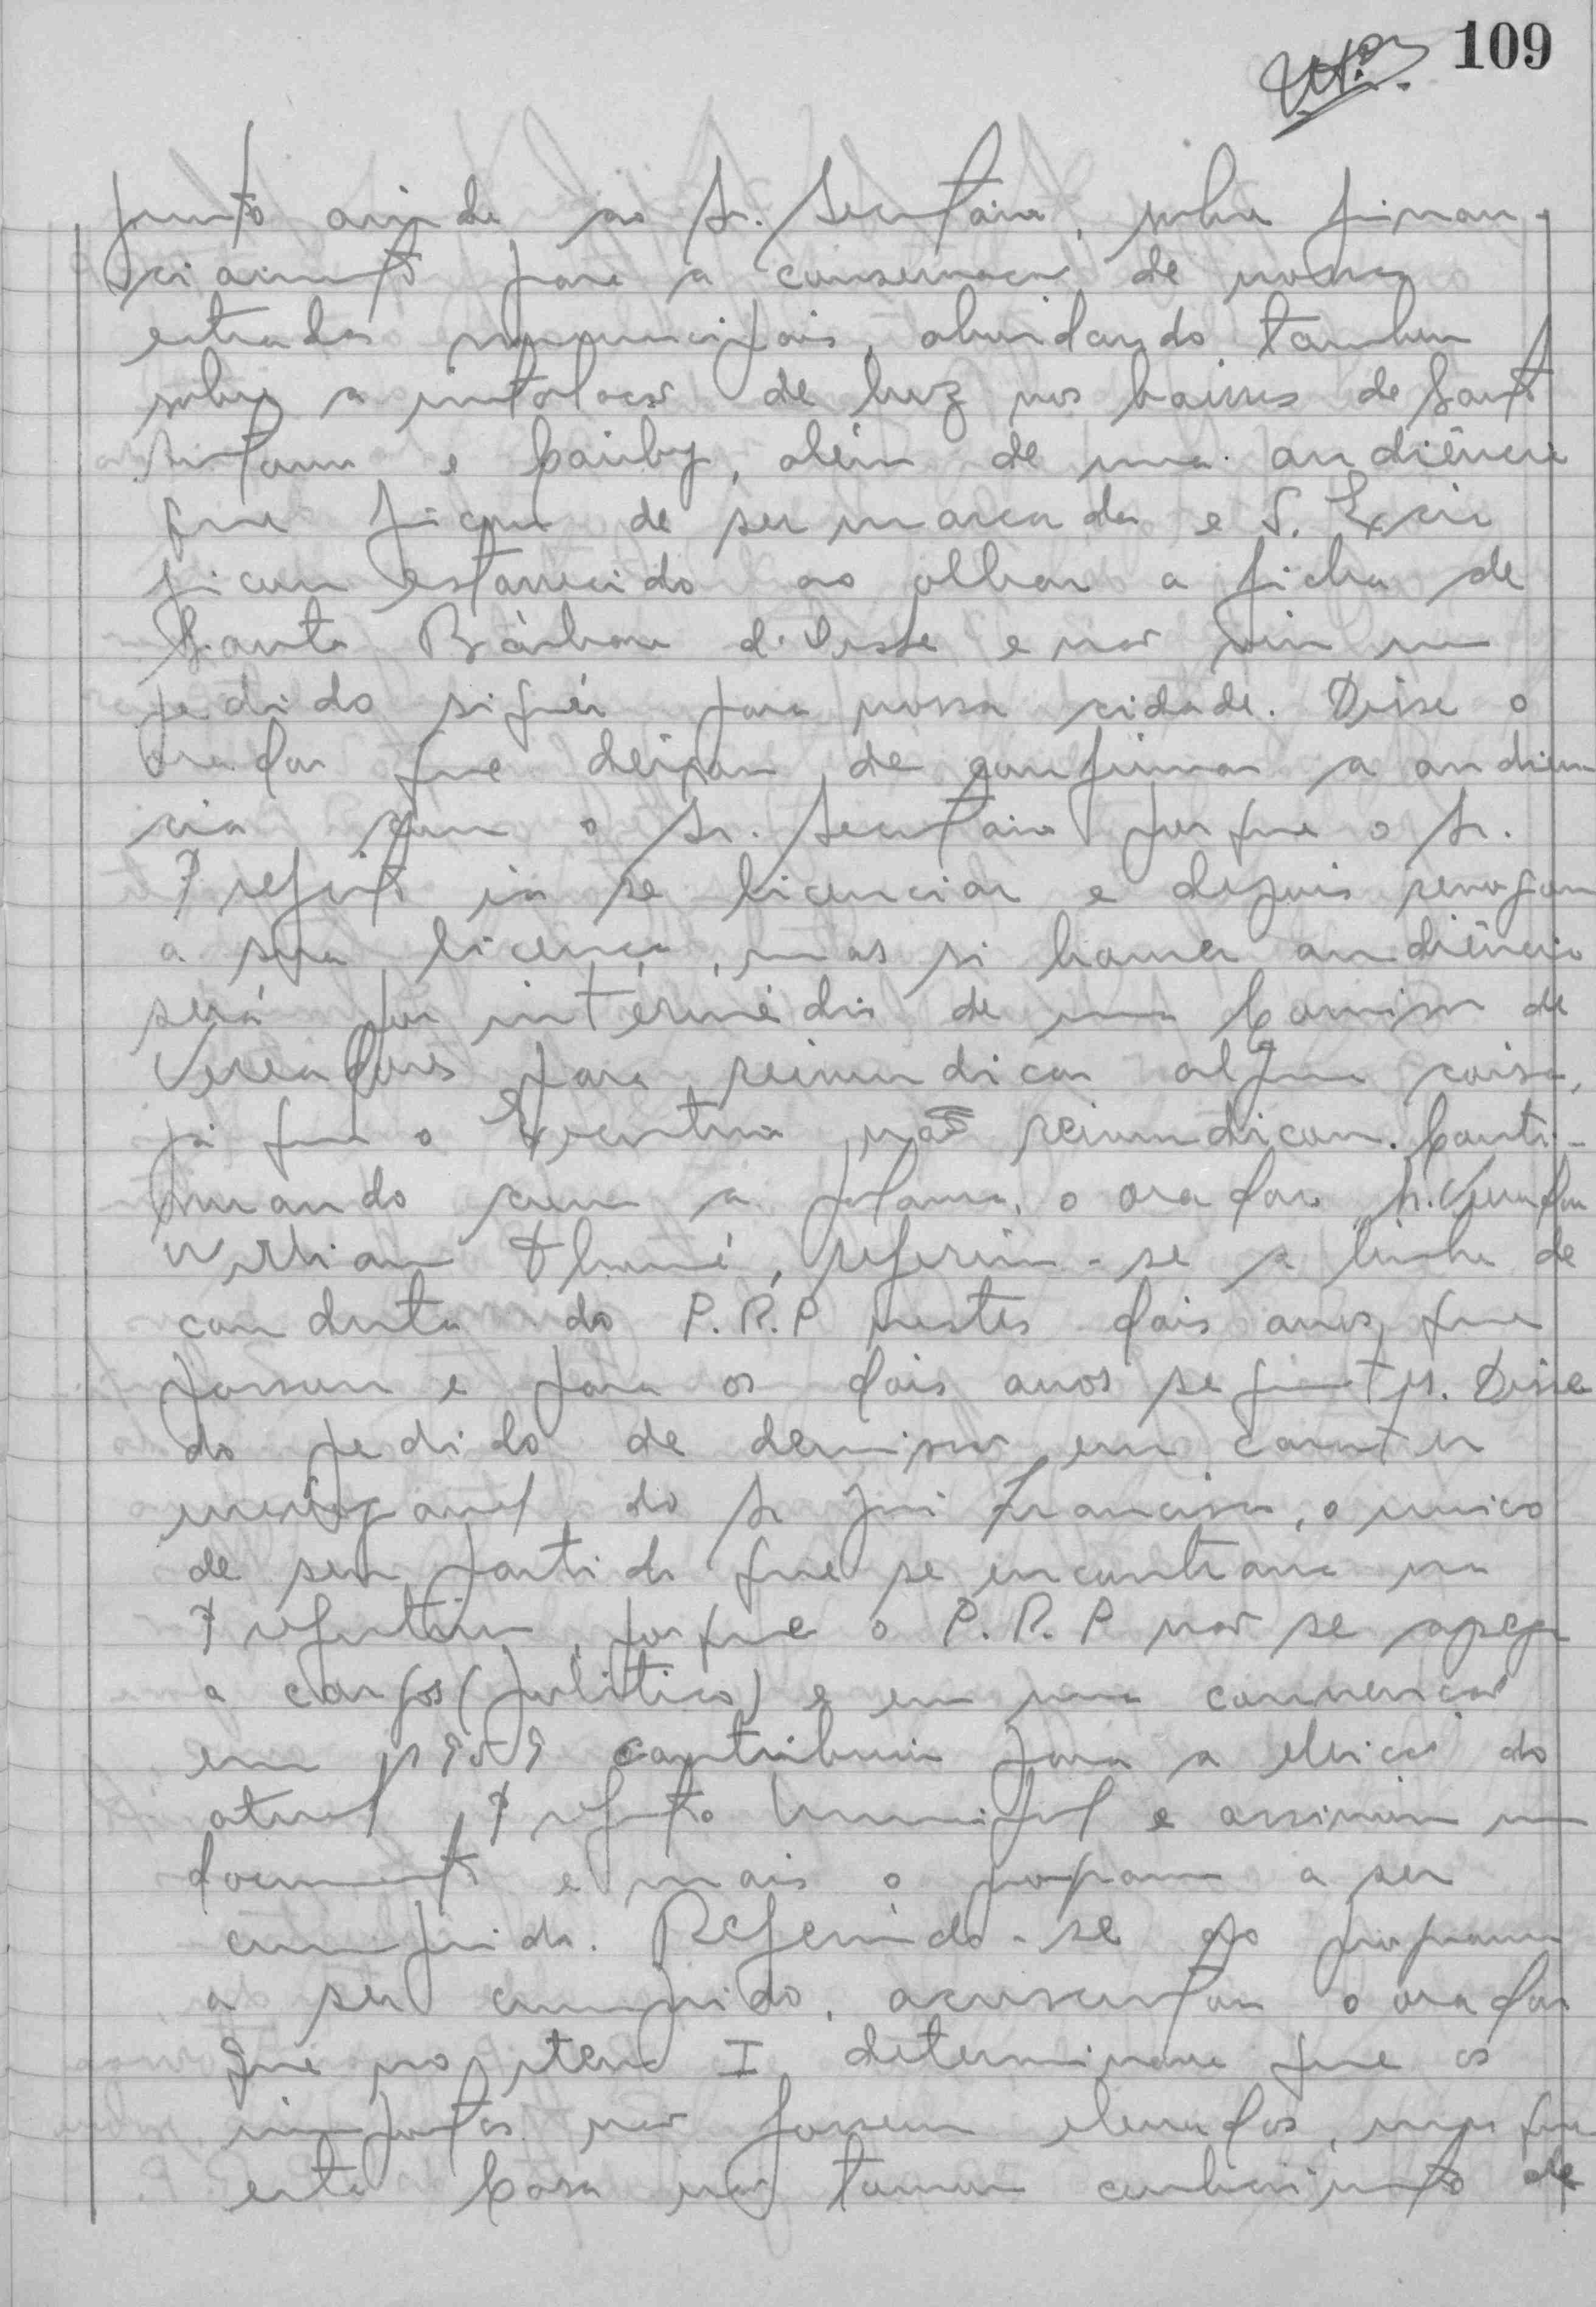 109
junto ainda ao Sr. Secretario, sobre finan-
ciamento para a conservação de nossas
estradas municipais, abordando tambem
sobre a instalação de luz nos bairros de Santo
Antonio e Cariby, além de uma audiência
que ficou de ser marcada e S. Excia
ficou estarrecido ao olhar a ficha de
Santa Bárbara d'Oeste e não viu um
pedido siquér para nossa cidade. Disse o
orador que deixou de confirmar a audien
cia com o Sr. Secretario porque o Sr.
Prefeito ia se licenciar e depois revogou
a sua licença, mas si houver audiência
será por intérmédio de uma Comissão de
Vereadores para reivindicar alguma coisa,
já que o Executivo não reivindicou. Conti-
nuando com a palavra, o orador Sr. Vereador
Willian Thomé, referiu-se a linha de
conduta do P.R.P nestes dois anos que
passou e para os dois anos seguintes. Disse
do pedido de demissão em carater
irrevogavel do Sr José Francisco, o unico
de seu partido que se encontrava na
Prefeitura, porque o P.R.P não se apega
a cargos (politico) e em uma convenção
em 1959 contribuiu para a eleição do
atual Prefeito Municipal e assinou um
documento e mais o programa a ser
cumprido. Referindo-se ao programa
a ser cumprido, acrescentou o orador
que no item I determinava que os
impostos não fossem elevados, mas que
esta Casa não tomou conhecimento de